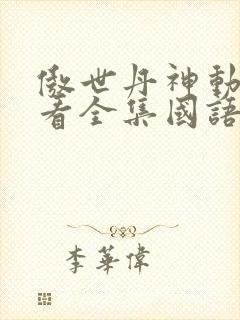 傲世丹神動
看全集國語
李華偉